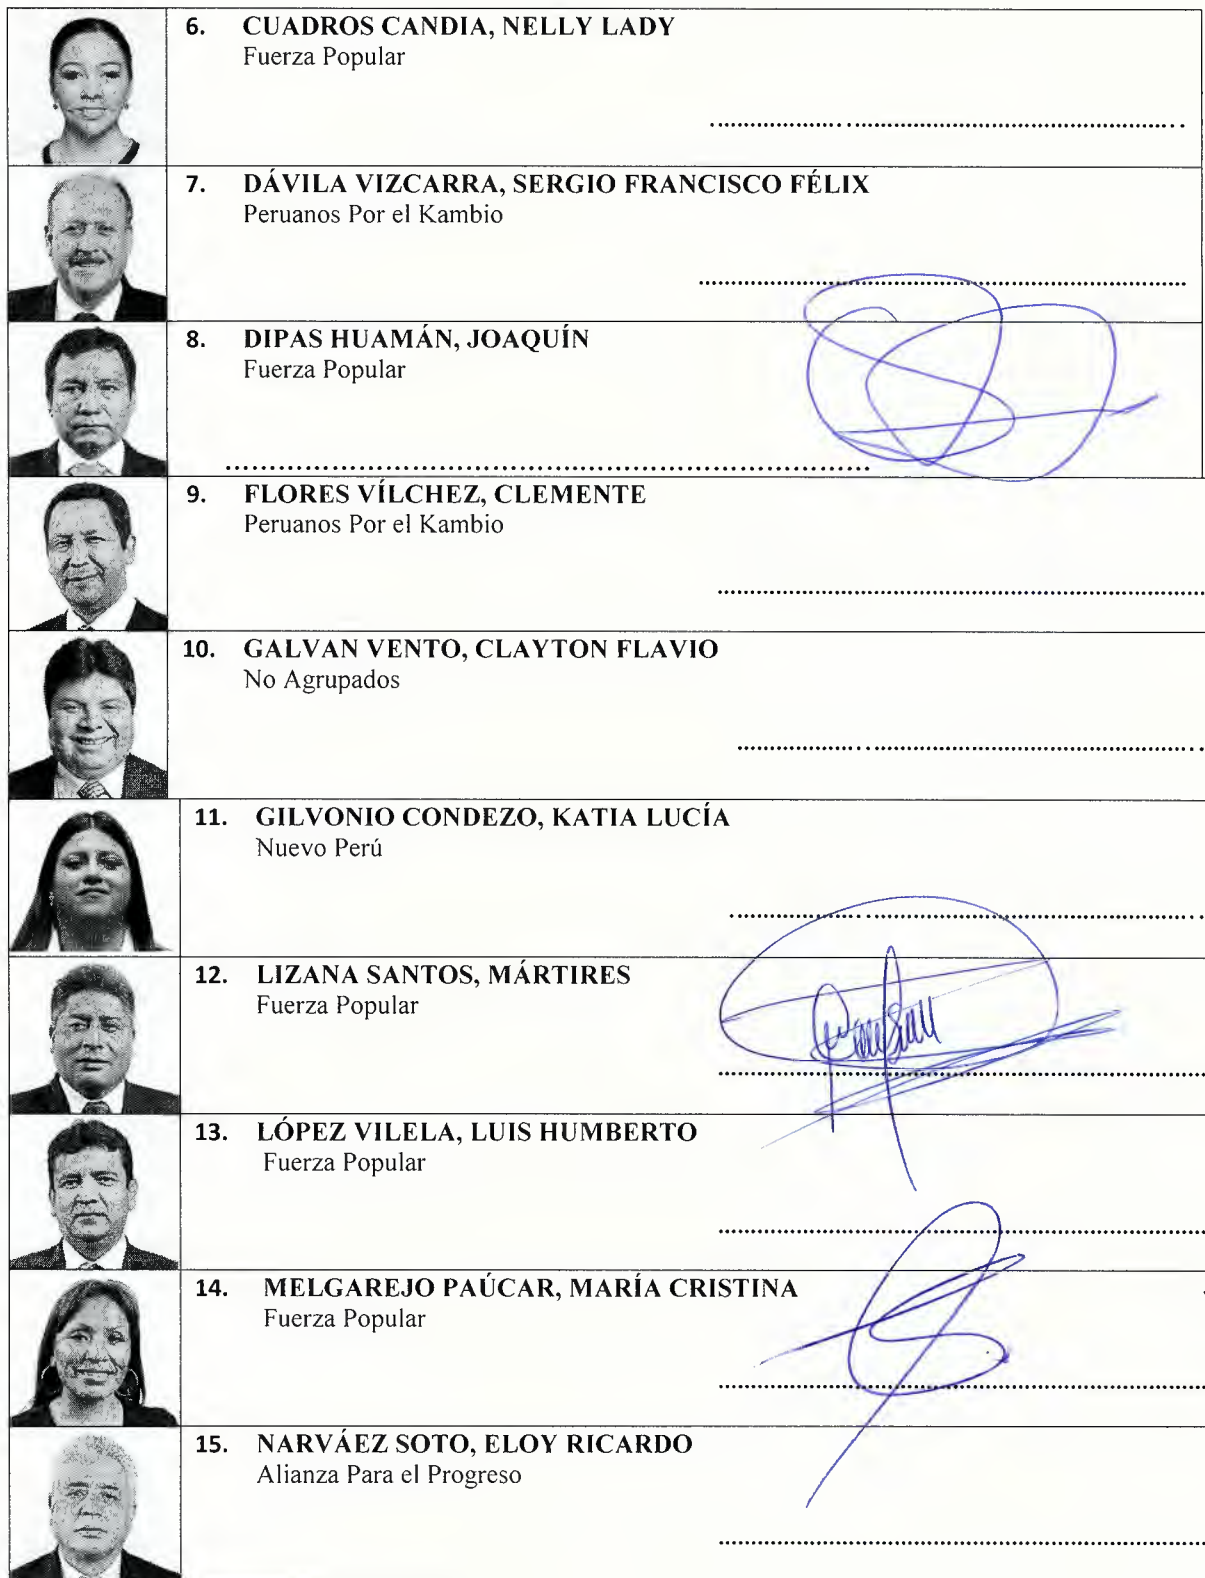 6. CUADROS CANDIA, NELLY LADY
Fuerza Popular
7. DÁVILA VIZCARRA, SERGIO FRANCISCO FÉLIX
Peruanos Por el Kambio
8. DIPAS HUAMÁN, JOAQUÍN
Fuerza Popular
9. FLORES VÍLCHEZ, CLEMENTE
Peruanos Por el Kambio
10. GALVAN VENTO, CLAYTON FLAVIO
No Agrupados
11. GILVONIO CONDEZO, KATIA LUCÍA
Nuevo Perú
12. LIZANA SANTOS, MÁRTIRES
Fuerza Popular
13. LÓPEZ VILELA, LUIS HUMBERTO
Fuerza Popular
14. MELGAREJO PAÚCAR, MARÍA CRISTINA
Fuerza Popular
15. NARVÁEZ SOTO, ELOY RICARDO
Alianza Para el Progreso